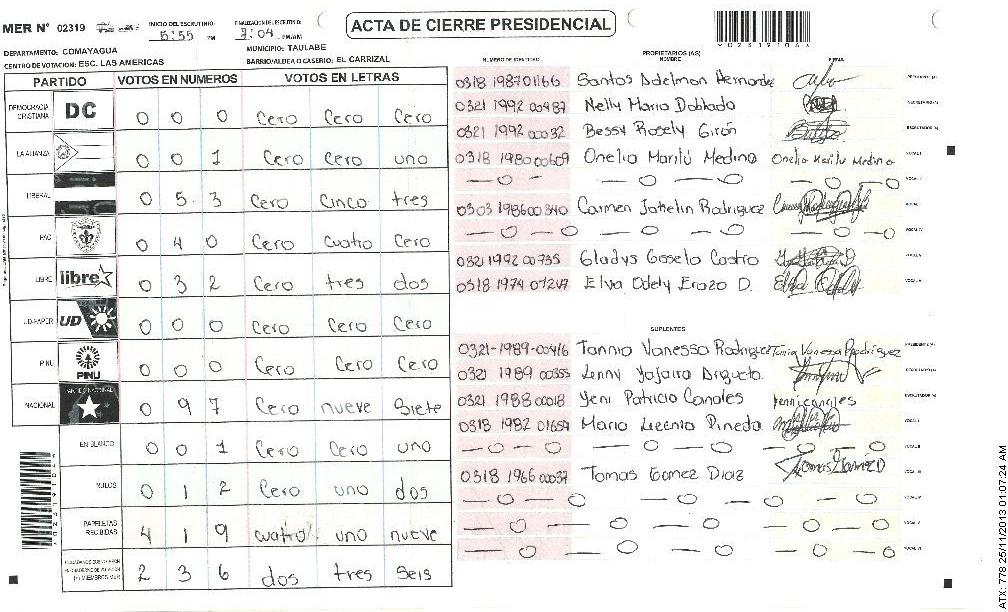 MER N° 02319
INICIO DEL ESCRUTINIO: 5:55 PM
FINALIZACION DEL ESCRUTINIO: 7:04 PM/AM
ACTA DE CIERRE PRESIDENCIAL
DEPARTAMENTO: COMAYAGUA
MUNICIPIO: TAULABE
CENTRO DE VOTACION: ESC. LAS AMERICAS
BARRIO/ALDEA O CASERIO: EL CARRIZAL
PARTIDO VOTOS EN NUMEROS VOTOS EN LETRAS
DEMOCRACIA CRISTIANA DC 0 0 0 Cero Cero Cero
LA ALIANZA 0 0 1 Cero Cero uno
LIBERAL 0 5 3 Cero Cinco tres
PAC 0 4 0 Cero cuatro Cero
LIBRE libre 0 3 2 Cero tres dos
UD-FAPER UD 0 0 0 Cero Cero Cero
PINU PINU 0 0 0 Cero Cero Cero
NACIONAL 0 9 7 Cero nueve Siete
EN BLANCO 0 0 1 Cero Cero uno
NULOS 0 1 2 Cero uno dos
PAPELETAS RECIBIDAS 4 1 9 cuatro uno nueve
2 3 6 dos tres Seis
NUMERO DE IDENTIDAD PROPIETARIOS (AS) NOMBRE FIRMA
0318 1987 01166 Santos Adelmon Hernandez PRESIDENTE (A)
0321 1992 00487 Nelly Maria Doblado SECRETARIO (A)
0321 1992 00032 Bessy Rosely Girón ESCRUTADOR (A)
0318 1980 00609 Onelia Marilú Medina Onelia Marilu Medina VOCAL I
— 0 — — 0 — 0 — 0 — 0 VOCAL II
0303 1986 00340 Carmen Jakelin Rodriguez VOCAL III
— 0 — 0 — 0 — 0 — 0 — 0 VOCAL IV
0321 1992 00735 Gladys Gissela Castro VOCAL V
0318 1974 01247 Elva Odely Erazo D. VOCAL VI
SUPLENTES
0321-1989-00416 Tannia Vanessa Rodriguez Tania Vanessa Rodriguez PRESIDENTE (A)
0321 1989 00355 Lenny Yajaira SECRETARIO (A)
0321 1988 00018 Yeni Patricia Canales yenni canales ESCRUTADOR (A)
0318 1982 01654 Mario Licenio Pineda VOCAL I
— 0 — 0 — 0 — 0 — 0 — 0 VOCAL II
0318 1966 00037 Tomas Gomez Diaz VOCAL III
— 0 — 0 — 0 — 0 — 0 — 0 VOCAL IV
— 0 — 0 — 0 — 0 — 0 VOCAL V
— 0 — 0 — 0 — 0 — 0 VOCAL VI
ATX: 778 25/11/2013 01:07:24 AM